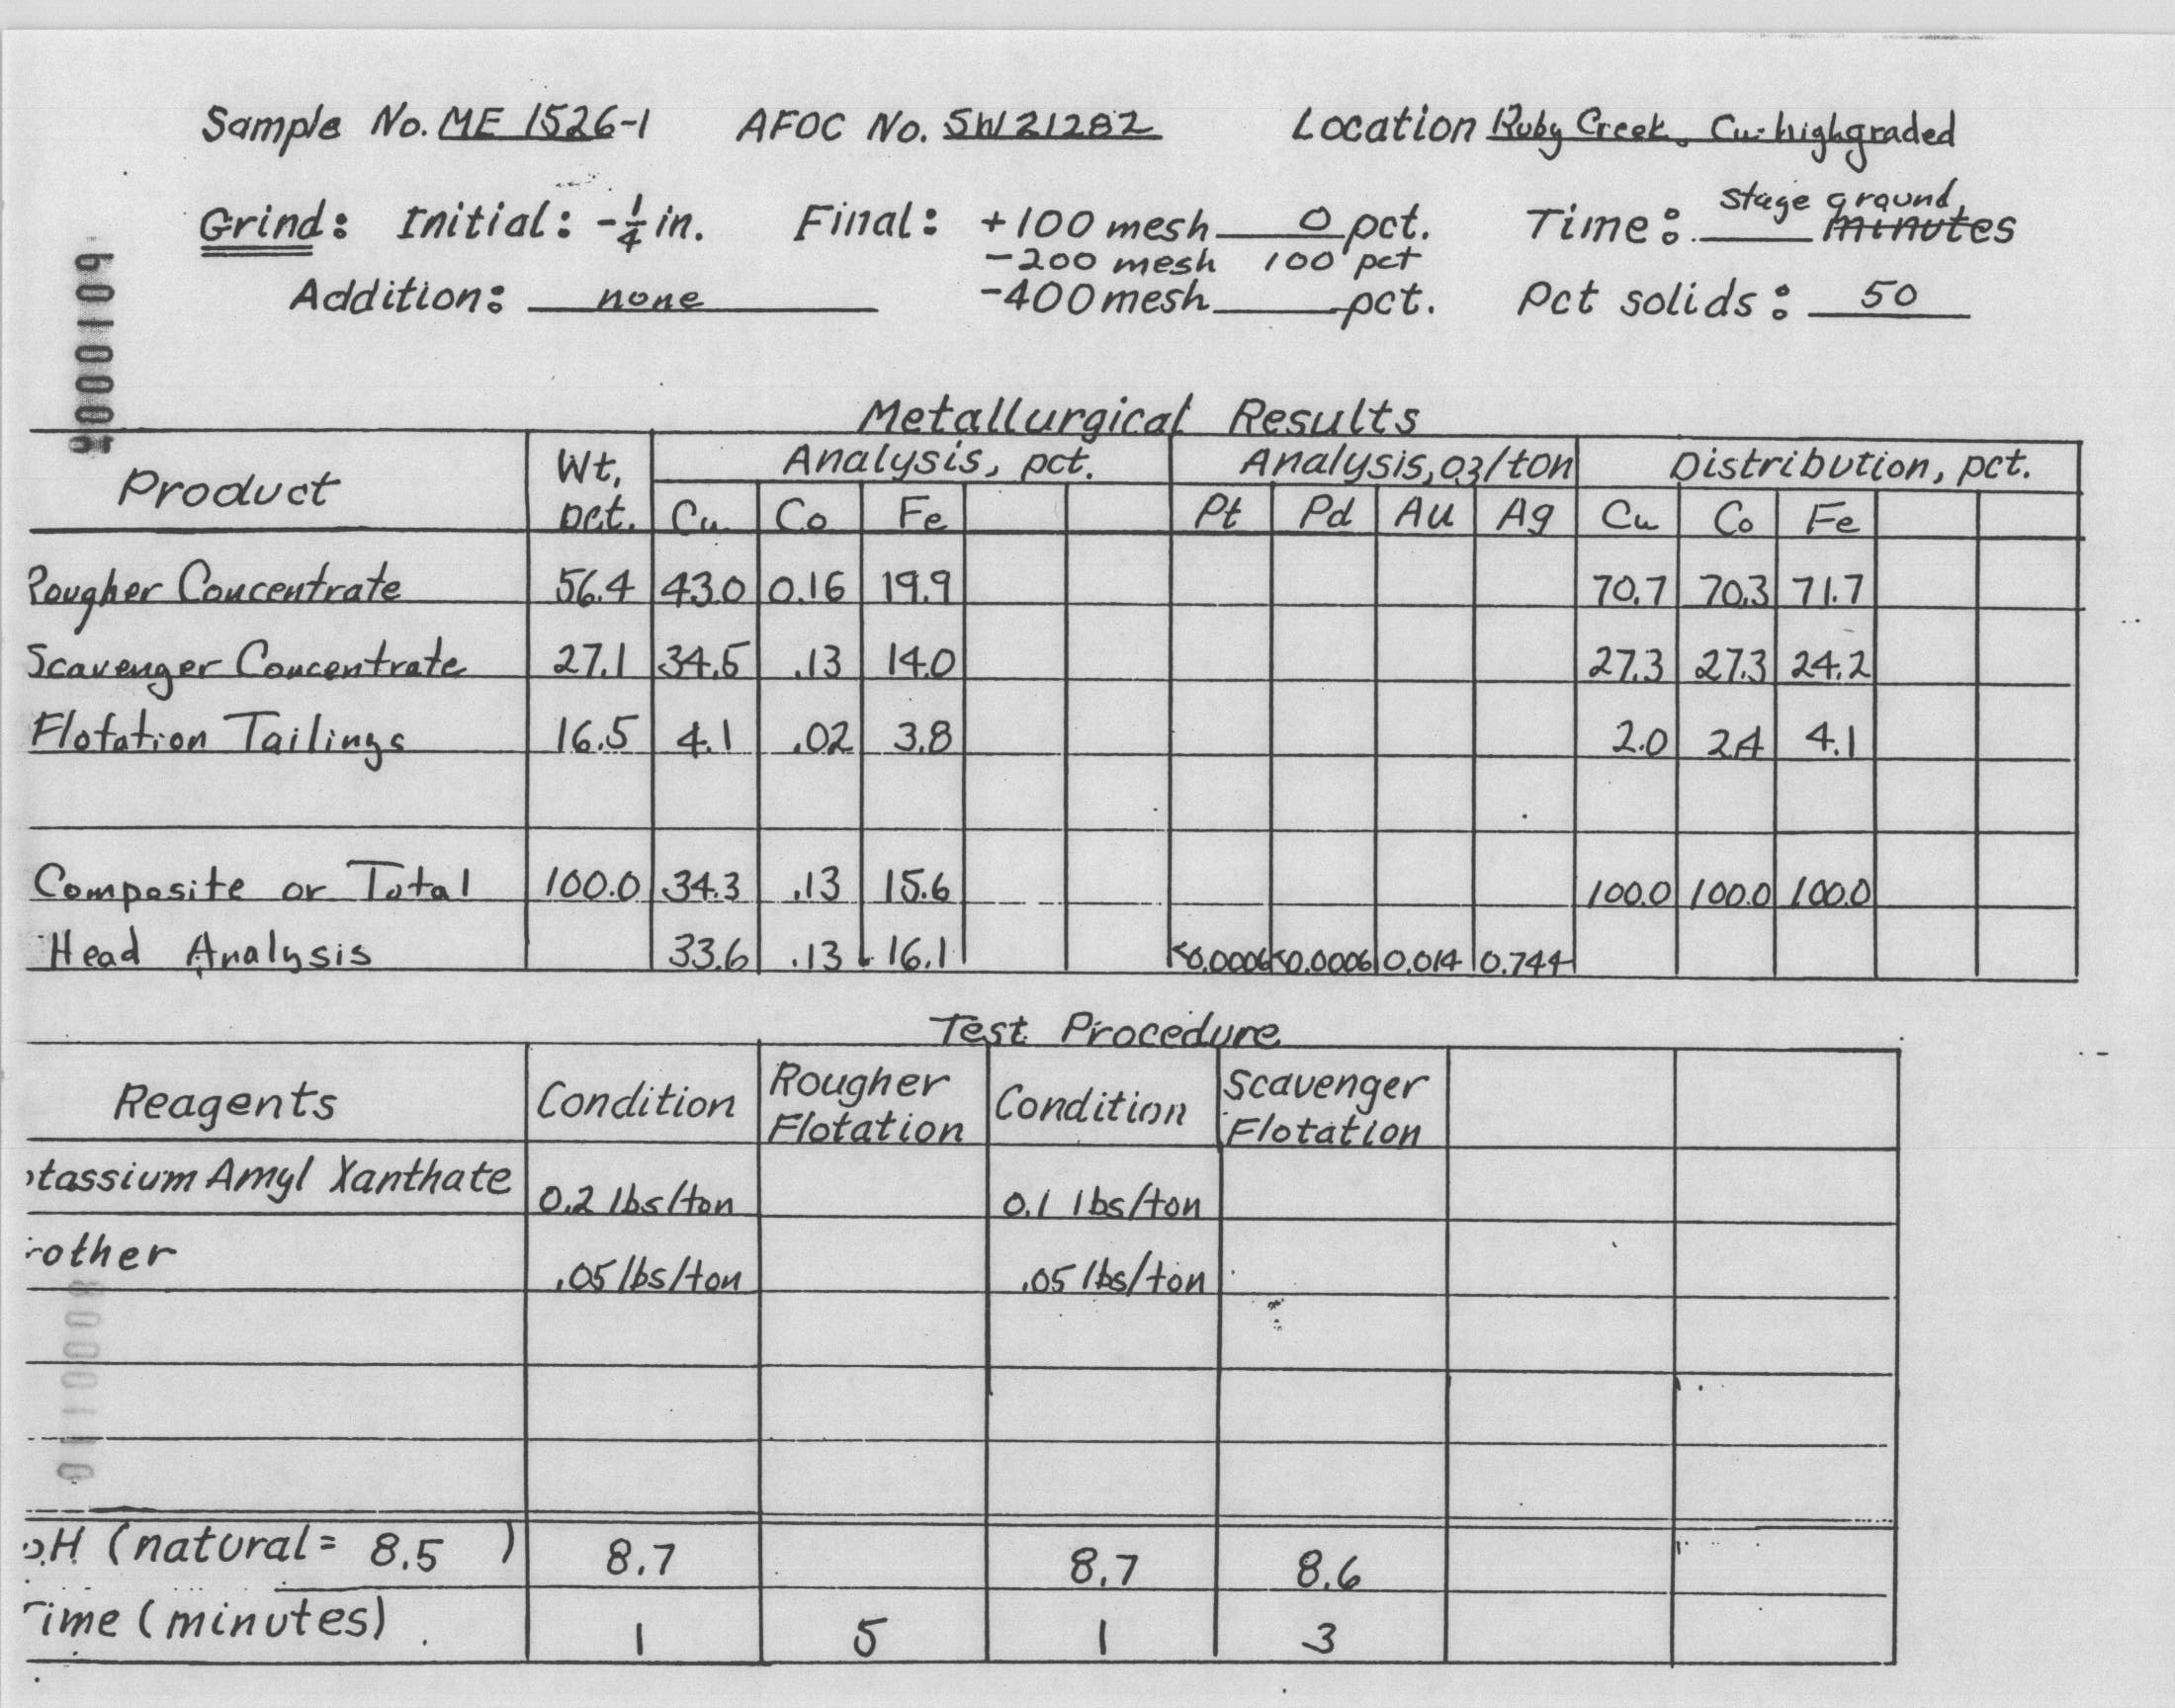 Sample No. ME 1526-1 AFOC No. SW21282 Location Ruby Creek, Cu-highgraded
Grind: Initial: -1/4 in. Final: +100 mesh 0 pct. Time: stage ground minutes
-200 mesh 100 pct
Addition: none -400 mesh pct. Pct solids: 50
Metallurgical Results
Product Wt, pct. Analysis, pct. Analysis, oz/ton Distribution, pct.
Cu Co Fe Pt Pd Au Ag Cu Co Fe
Rougher Concentrate 56.4 43.0 0.16 19.9 70.7 70.3 71.7
Scavenger Concentrate 27.1 34.5 .13 14.0 27.3 27.3 24.2
Flotation Tailings 16.5 4.1 .02 3.8 2.0 2.4 4.1
Composite or Total 100.0 34.3 .13 15.6 100.0 100.0 100.0
Head Analysis 33.6 .13 16.1 <0.0006 <0.0006 0.014 0.744
Test Procedure
Reagents Condition Rougher Flotation Condition Scavenger Flotation
otassium Amyl Xanthate 0.2 lbs/ton 0.1 lbs/ton
rother .05 lbs/ton .05 lbs/ton
pH (natural= 8.5 ) 8.7 8.7 8.6
Time (minutes) 1 5 1 3